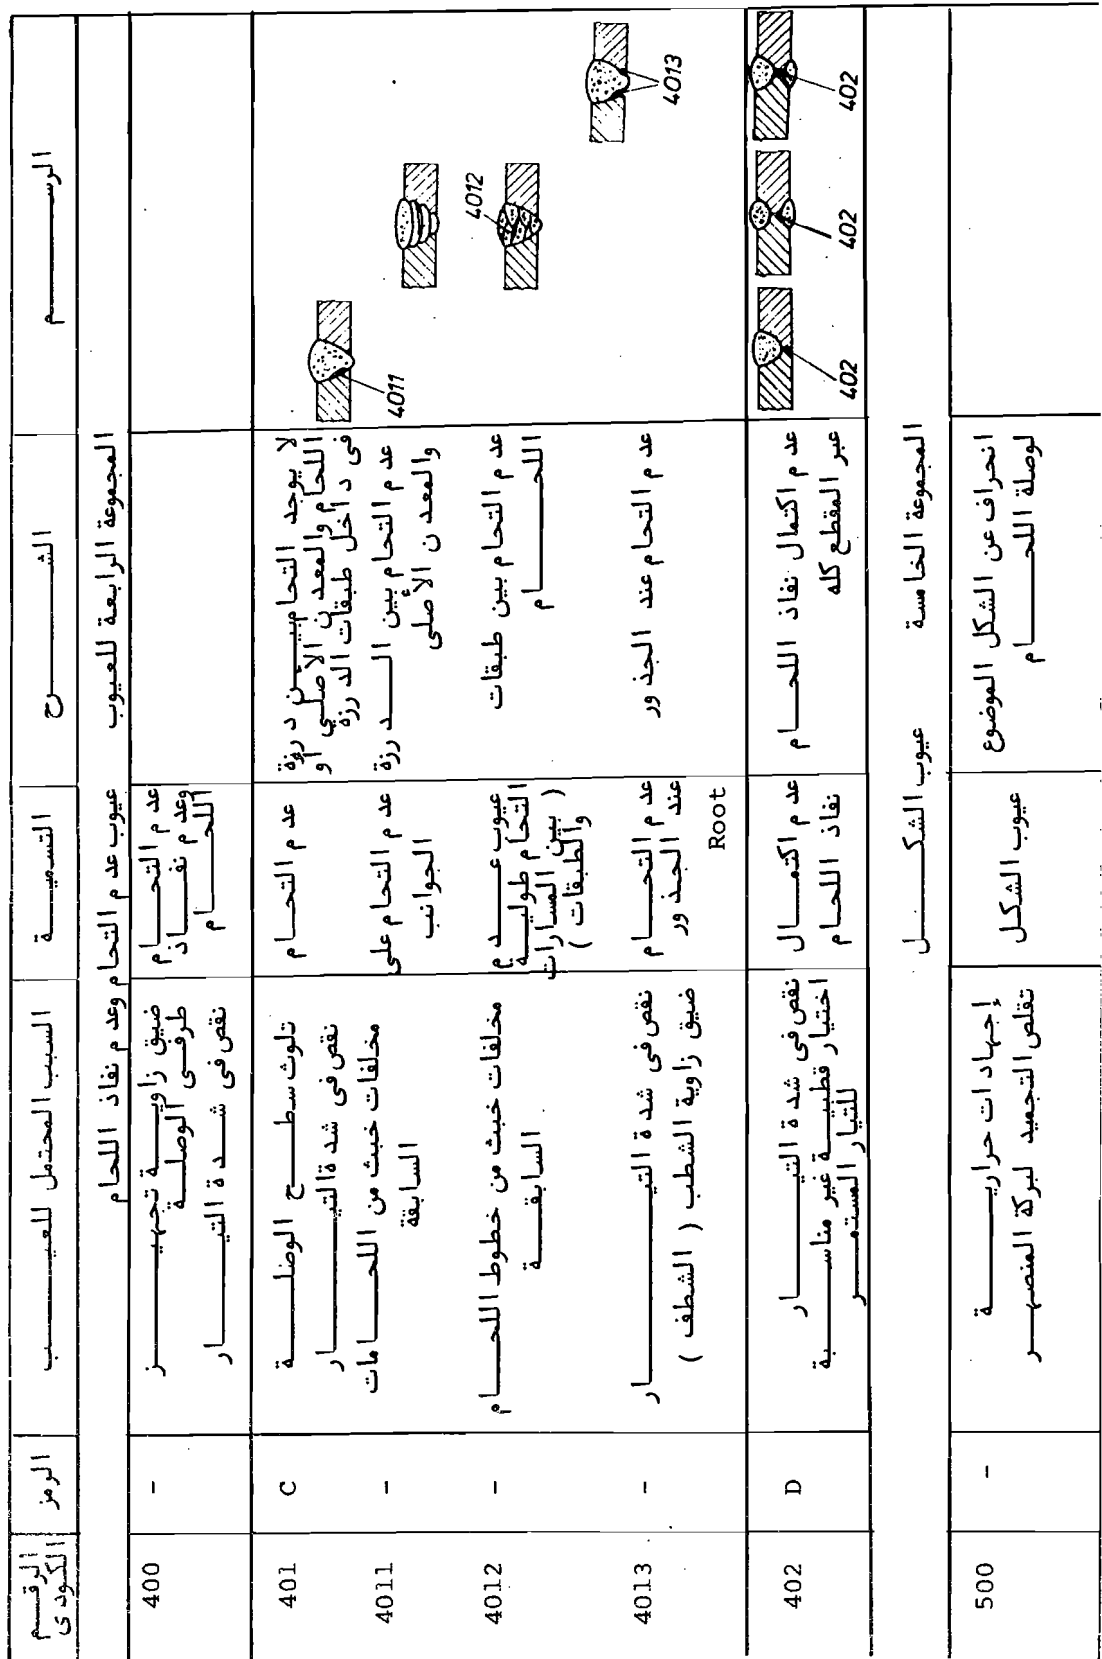 الرقم الكودى
الرمز
السبب المحتمل للعيب
التسمية
الشرح
الرسم
المجموعة الرابعة للعيوب
عيوب عدم التحام وعدم نفاذ اللحام
400
-
ضيق زاوية تجهيز
طرفى الوصلة
نقص فى شدة التيار
عدم التحام
وعدم نفاذ
اللحام
401
C
تلوث سطح الوصلة
نقص فى شدة التيار
عدم التحام
لا يوجد التحام بين درزة
اللحام والمعدن الأصلي أو
فى داخل طبقات الدرزة
4011
-
مخلفات خبث من اللحامات
السابقة
عدم التحام على
الجوانب
عدم التحام بين الدرزة
والمعدن الأصلى
4011
4012
-
مخلفات خبث من خطوط اللحام
السابقة
عيوب عدم
التحام طولية
( بين المسارات
والطبقات )
عدم التحام بين طبقات
اللحام
4012
4013
-
نقص فى شدة التيار
ضيق زاوية الشطب ( الشطف )
عدم التحام
عند الجذور
Root
عدم التحام عند الجذور
4013
402
D
نقص فى شدة التيار
اختيار قطبية غير مناسبة
للتيار المستمر
عدم اكتمال
نفاذ اللحام
عدم اكتمال نفاذ اللحام
عبر المقطع كله
402
402
402
المجموعة الخامسة
عيوب الشكل
500
-
إجهادات حرارية
تقلص التجميد لبركة المنصهر
عيوب الشكل
انحراف عن الشكل الموضوع
لوصلة اللحام